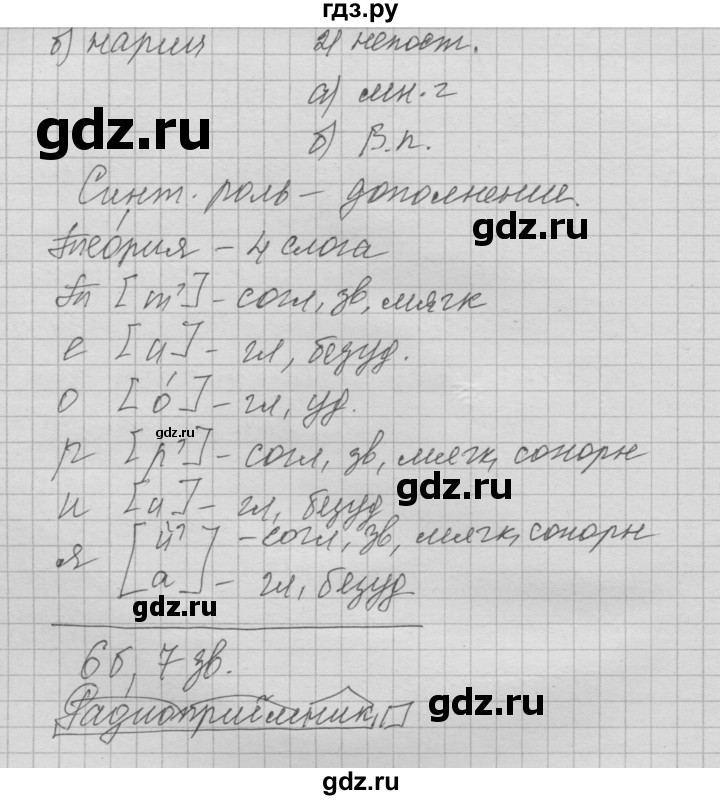 гдз.ру
б) нариц 2) непост.
а) мн. ч
gdz.ru
б) В.п.
Синт. роль – дополнение.
gdz.ru
теория – 4 слога
т [т'] – согл, зв, мягк
е [и] – гл, безуд.
о [ó] – гл, уд.
gdz.ru
р [р'] – согл, зв, мягк, сонорн
gdz.ru
и [и] – гл, безуд
я [й' – согл, зв, мягк, сонорн
а] – гл, безуд
gdz.ru
6б, 7 зв.
Радиоприёмник
gdz.ru
gdz.ru